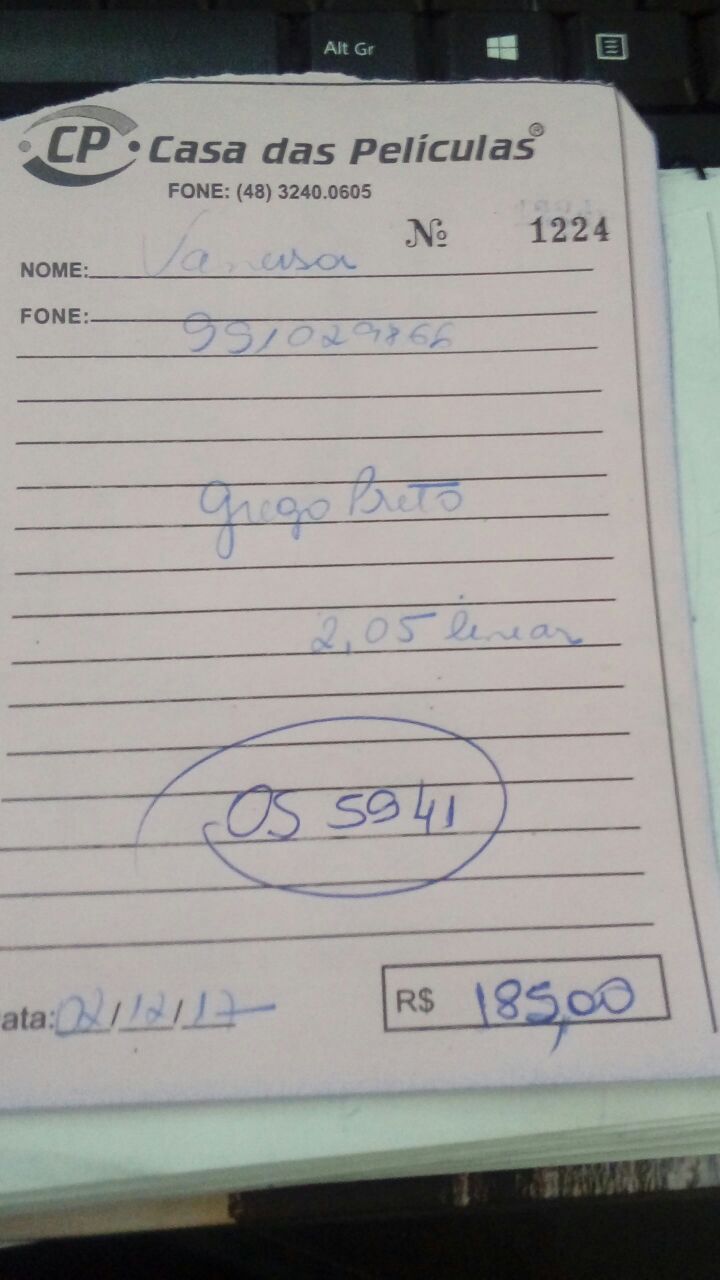 Alt Gr
CP Casa das Películas®
FONE: (48) 3240.0605
Nº 1224
NOME: Vanessa
FONE:
991029866
Grego Preto
2,05 linear
OS 5941
ata: 02/12/17 R$ 185,00